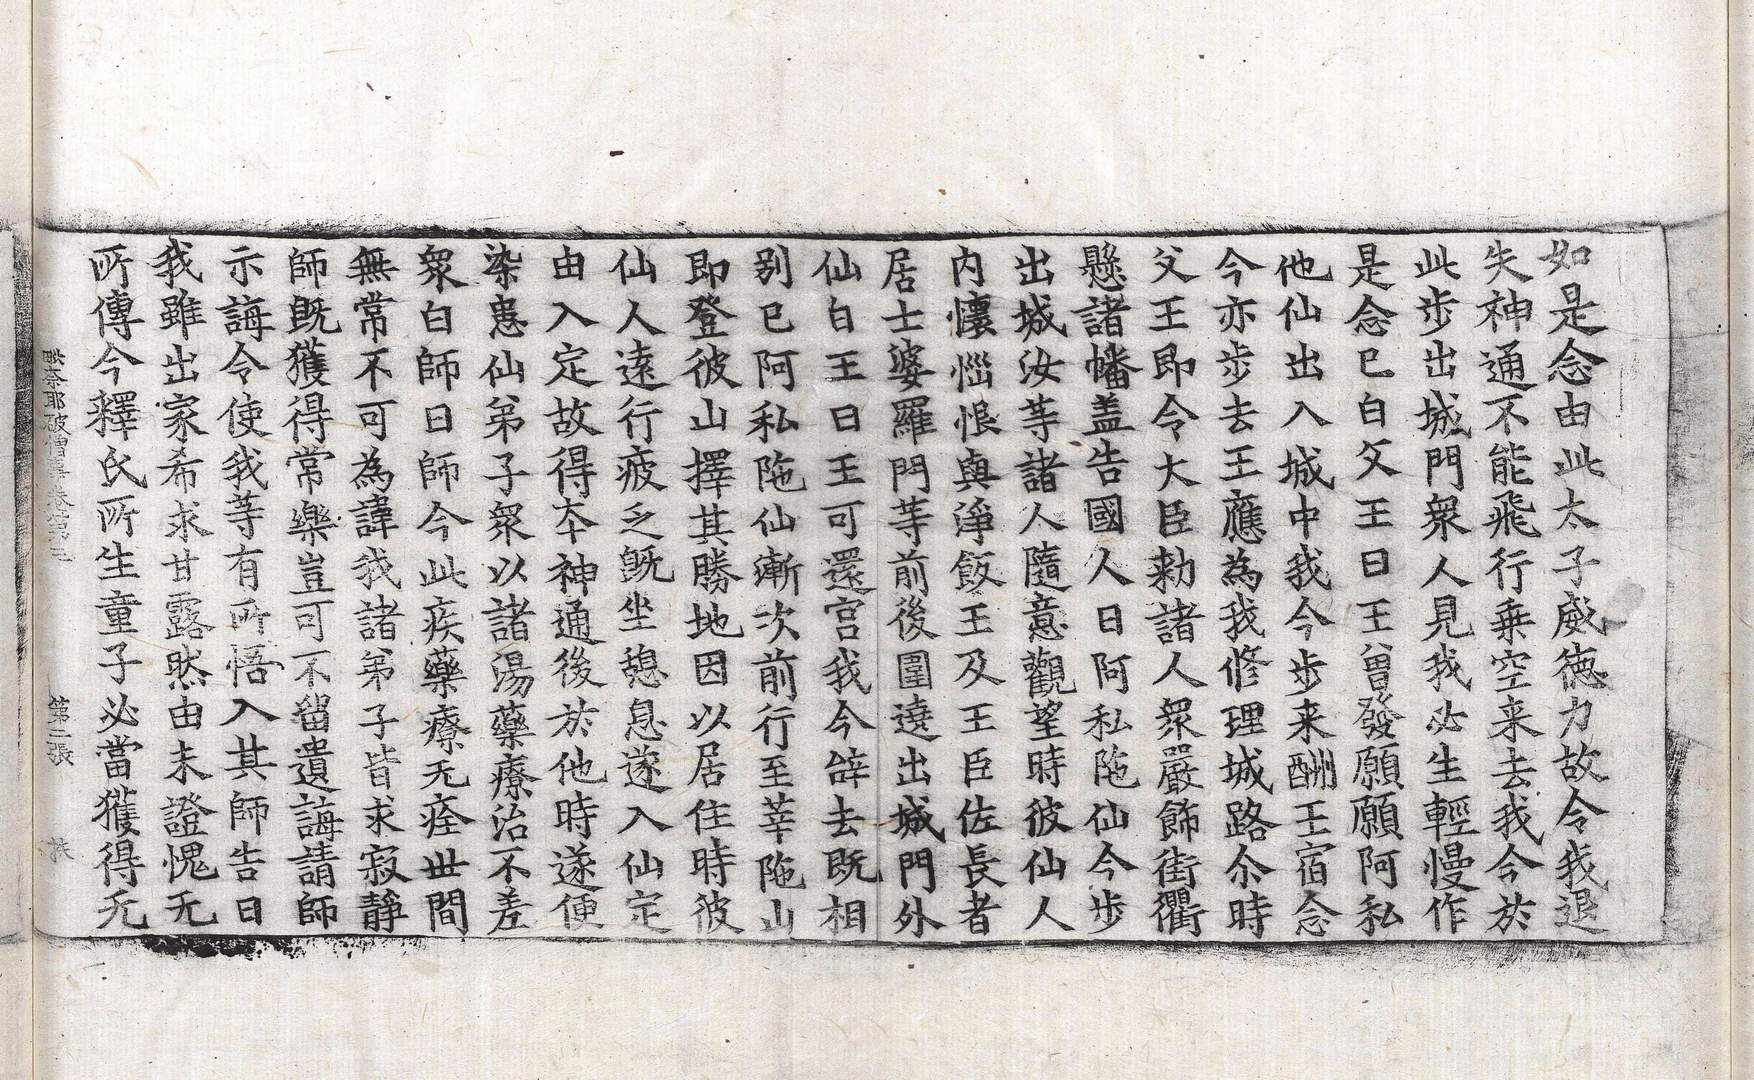 如是念由此太子威徳力故令我退
失神通不能飛行乗空来去我今於
此步出城門衆人見我必生輕慢作
是念已白父王曰王曾發願願阿私
他仙出入城中我今步来酬王宿念
今亦步去王應為我修理城路尒時
父王即令大臣勑諸人衆嚴飾街衢
懸諸幡盖告國人曰阿私陁仙今步
出城汝等諸人隨意觀望時彼仙人
内懷惱恨與淨飯王及王臣佐長者
居士婆羅門等前後圍遶出城門外
仙白王曰王可還宫我今辝去既相
别已阿私陁仙漸次前行至莘陁山
即登彼山擇其勝地因以居住時彼
仙人逺行疲乏既坐憩息遂入仙定
由入定故得夲神通後於他時遂便
染患仙弟子衆以諸湯藥療治不差
衆白師曰師今此疾藥療无痊世間
無常不可為諱我諸弟子皆求寂靜
師既獲得常樂豈可不留遺誨請師
示誨令使我等有所悟入其師告曰
我雖出家希求甘露然由未證愧无
所傳今釋氏所生童子必當獲得无
毗奈耶破僧事卷第三 第二張 扶